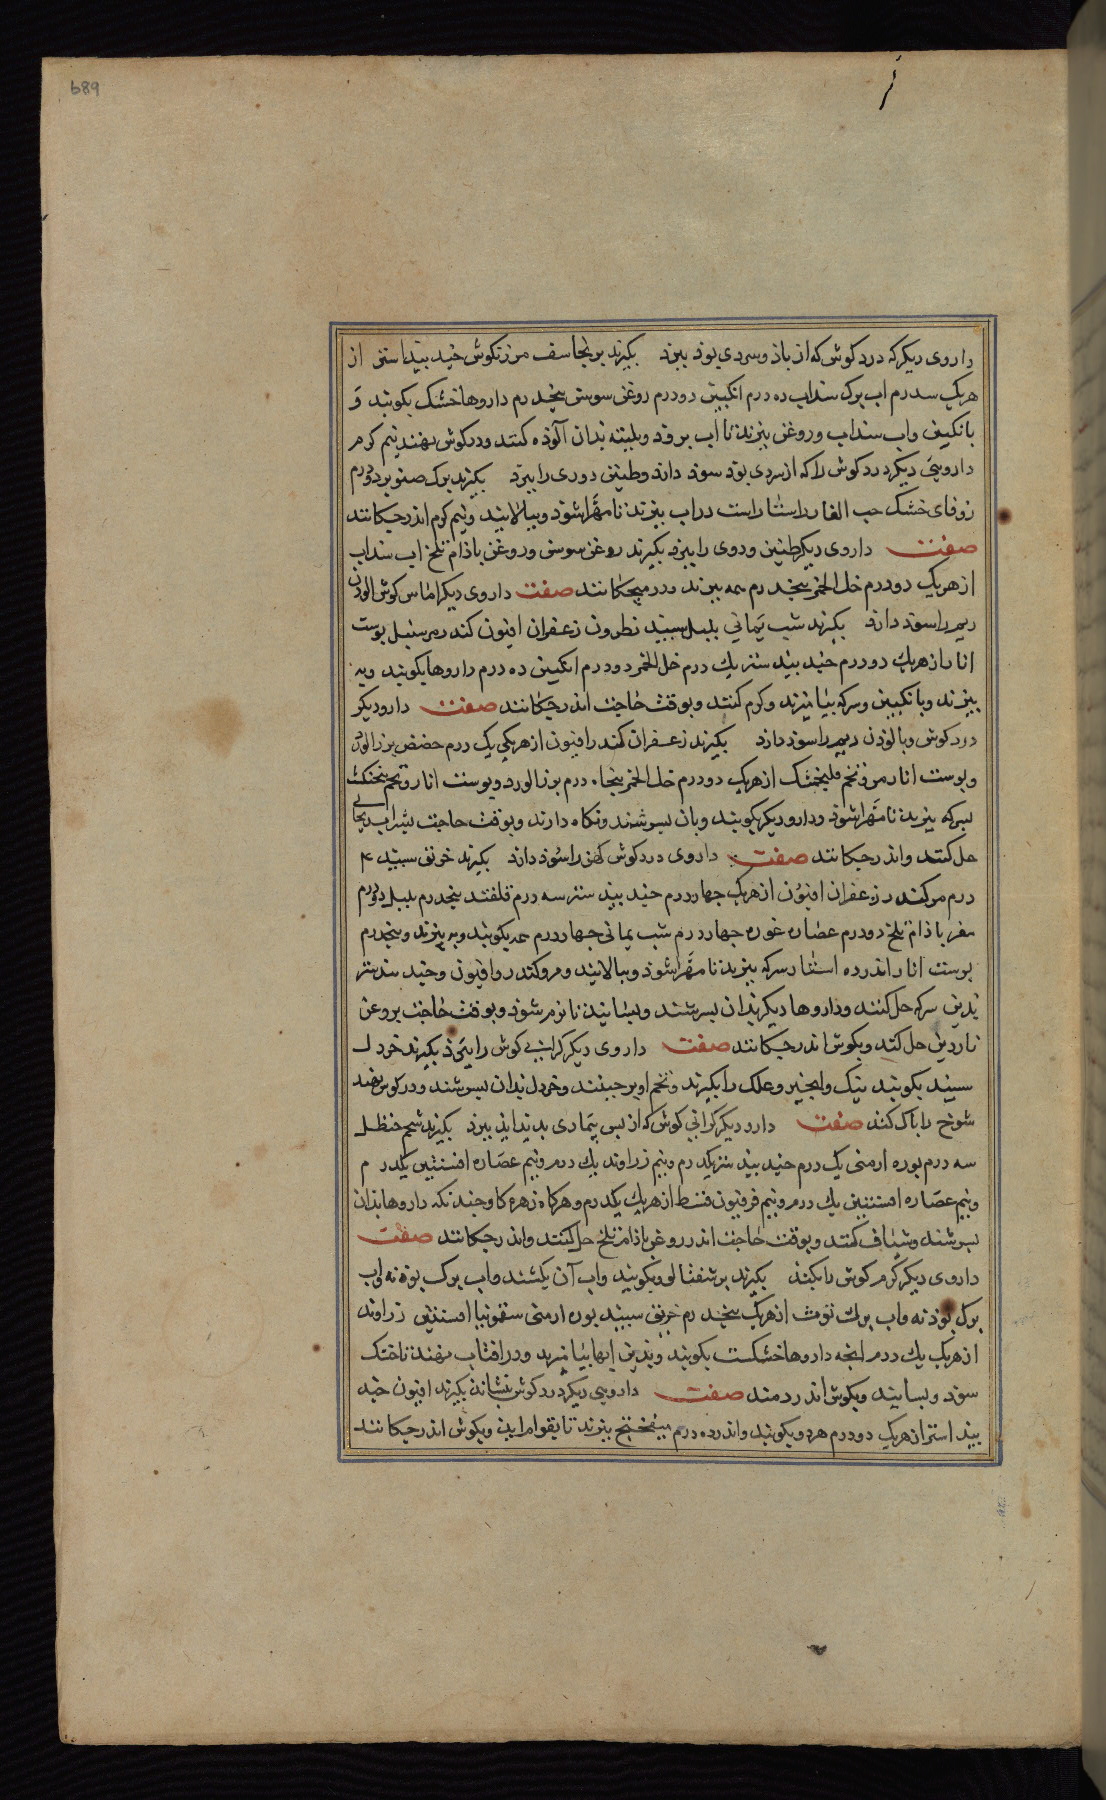 689
داروی دیکر که درد کوش که از باذ و سردی بوذ ببرذ بکیرند برنجاسف مرزنکوش جند بیداستر از
هریک سدرم اب برک سنداب ده درم انکبین دودرم روغن سوسن پنجدرم داروها خشک بکوبند و
بانکبین واب سنداب وروغن بپزند تا اب برود وبلیته بدان آلوده کنند ودرکوش نهند نیم کرم
داروییَ دیکر درد کوش را که از سردی بوذ سوذ دارد وطنین دوری را ببرذ بکیرند برک صنوبر دودرم
زوفای خشک حب الغار راستا راست در اب بپزند تا مهرّا شوذ وببالایند ونیم کرم اندر چکانند
صفت داروی دیکر طنین ودوی را ببرذ بکیرند روغن سوسن وروغن باذام تلخ اب سنداب
از هریک دودرم خل الخمر پنجدرم همه بپزند ودرمیچکانند صفت داروی دیکر اماس کوش الوذن
ریم را سوذ دارذ بکیرند شب یمانی بلبل سبید نطرون زعفران افیون کندر مر سنبل پوست
انار از هریک دودرم جند بید ستر یک درم خل الخمر دودرم انکبین ده درم داروها بکوبند وبه
بپزند وبا نکبین وسرکه بیامیزند وکرم کنند وبوقت حاجت اندر چکانند صفت دارو دیکر
درد کوش وبالوذن ریم را سوذ دارذ بکیرند زعفران کندر افیون از هریکی یک درم حضض بزر الورد
وپوست انار مر و تخم فلنجشک از هریک دودرم خل الخمر پنجاه درم بزر الورد وپوست انار وتخم پنجنکشت
بسرکه بپزند تا مهَّرا شوذ ودارو دیکر بکوبند وبان بسرشند ونکاه دارند وبوقت حاجت بشراب ریحانی
حل کنند واندر چکانند صفت داروی درد کوش کهن را سوُذ دارذ بکیرند خربق سبید ۴
درم مر کندر زعفران افیوُن از هریک جهاردرم جند بید ستر سه درم قلقند پنجدرم بلبل دودرم
مغز باذام تلخ دودرم عصاره غوره جهاردرم شب یمانی جهاردرم همه بکوبند وبپزند وپنجدرم
پوست انار اندر ده استار سرکه بپزند تا مهَّرا شوذ وببالایند ومر وکندر وافیون وجند بید ستر
بدین سرکه حل کنند وداروها دیکر بدان بسرشند وبسایند تا نرم شوذ وبوقت حاجت بروغن
ناردین حل کنند وبکوش اندر چکانند صفت داروی دیکر کرانیی کوش را ببَرذ بکیرند خردل
سبید بکوبند نیک وانجیر وعلک را بکیرند وتخم او برجینند وخردل بدان بسرشند ودرکوش نهند
شوخ را باک کند صفت دارو دیکر کرانی کوش که از بس بیماری بدید اید ببرذ بکیرند شحم حنظل
سه درم بوره ارمنی یک درم جند بید ستر یکدرم ونیم زراوند یک درم ونیم عصاره افسنتین یکدرم
ونیم عصاره افسنتین یک درم ونیم فرفیون قسط از هریک یکدرم وهرکاه زهره کاو جندنکه داروها بدان
بسرشند وشیاف کنند وبوقت حاجت اندر روغن باذام تلخ حل کنند واندر چکانند صفت
داروی دیکر کرم کوش را بکشد بکیرند برشفتالو بکوبند واب آن بکشند واب برک بوذنه واب
برک بوذنه واب برک توت از هریک پنجدرم خربق سبید بوره ارمنی سقمونیا افسنتین زراوند
از هریک یک درم انجه داروها خشکست بکوبند وبدین ابها بیامیزند ودر افتاب نهند تا خشک
سوذ وبسایند وبکوش اندر دمند صفت داروییی دیکر درد کوش بنشاند بکیرند افیون جند
بید استر از هریک دودرم هردو بکوبند واندر ده درم میفختج بپزند تا بقوام اید وبکوش اندر چکانند